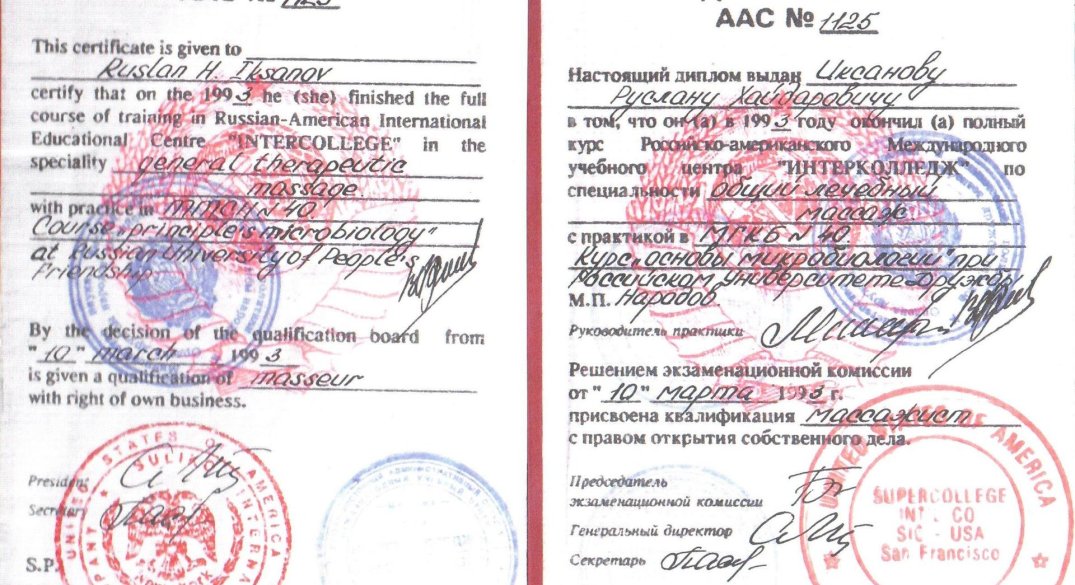 This certificate is given to
Ruslan H. Iksanov
certify that on the 1993 he (she) finished the full
course of training in Russian-American International
Educational Centre "INTERCOLLEGE" in the
speciality general therapeutic
massage.
with practice in MMCH N 40.
Course „principle's microbiology"
at Russian University of People's
friendship
By the decision of the qualification board from
"10" march 1993
is given a qualification of masseur
with right of own business.
President
Secretary
S.P.
UNITED STATES OF AMERICA
JULIKO
NEW YORK
ААС № 1125
Настоящий диплом выдан Иксанову
Руслану Хайдаровичу
в том, что он (а) в 1993 году окончил (а) полный
курс Российско-американского Международного
учебного центра "ИНТЕРКОЛЛЕДЖ" по
специальности общий лечебный
массаж.
с практикой в МГКБ N 40.
Курс „основы микробиологии" при
Российском университете Дружбы
М.П. Народов.
Руководитель практики
Решением экзаменационной комиссии
от "10" марта 1993 г.
присвоена квалификация массажист
с правом открытия собственного дела.
Председатель
экзаменационной комиссии
Генеральный директор
Секретарь
UNITED STATES OF AMERICA
SUPERCOLLEGE
INT - CO
SIC - USA
San Francisco